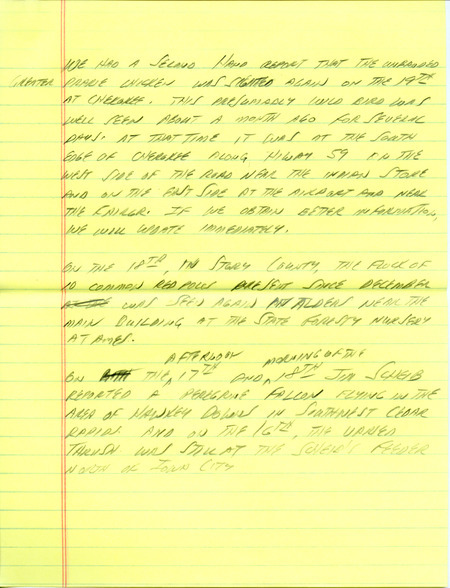 WE HAD A SECOND HAND REPORT THAT THE UNBANDED
GREATER PRAIRIE CHICKEN WAS SIGHTED AGAIN ON THE 19TH
AT CHEROKEE. THIS PRESUMABLY WILD BIRD WAS
WELL SEEN ABOUT A MONTH AGO FOR SEVERAL
DAYS. AT THAT TIME IT WAS AT THE SOUTH
EDGE OF CHEROKEE ALONG HIWAY 59 ON THE
WEST SIDE OF THE ROAD NEAR THE INDIAN STORE
AND ON THE EAST SIDE AT THE AIRPORT AND NEAR
THE IF WE OBTAIN BETTER INFORMATION,
WE WILL UPDATE IMMEDIATELY.
ON THE 18TH, IN STORY COUNTY, THE FLOCK OF
10 COMMON REDPOLLS PRESENT SINCE DECEMBER
WAS SEEN AGAIN IN ALDERS NEAR THE
MAIN BUILDING AT THE STATE FORESTY NURSERY
AT AMES.
AFTERNOON MORNING OF THE
ON THE 17TH AND 18TH JIM SCHEIB
REPORTED A PEREGRINE FALCON FLYING IN THE
AREA OF HAWKEY DOWNS IN SOUTHWEST CEDAR
RAPIDS AND ON THE 16TH, THE VARIED
THRUSH WAS STILL AT THE SCHEIB'S FEEDER
NORTH OF IOWA CITY